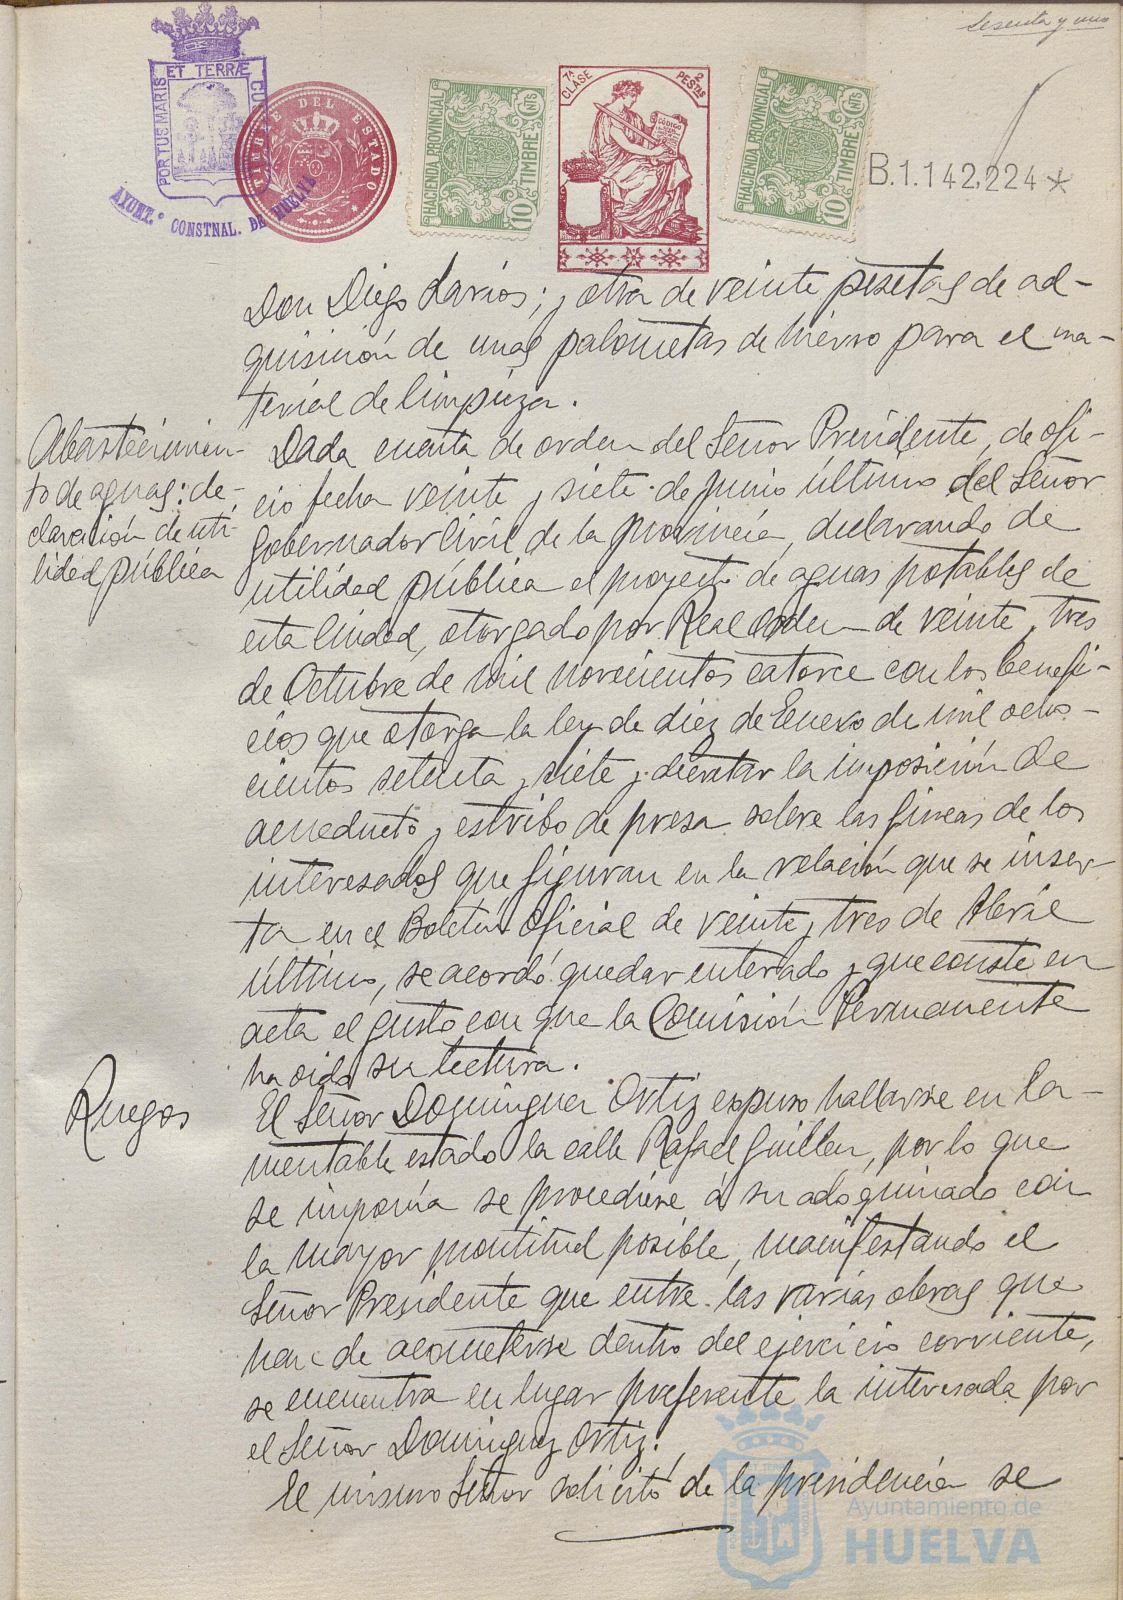 Sesenta y uno
ET TERRÆ
PORTUS MARIS
CU
AYUNT.º CONSTNAL. DE HUELVA
TIMBRE DEL ESTADO
HACIENDA PROVINCIAL
TIMBRE
10 CNTS
7ª CLASE
2 PESTAS
CODIGO
HACIENDA PROVINCIAL
TIMBRE
10 CNTS
B.1.142.224*
Don Diego Larios; y otra de veinte pesetas de ad-
quisición de unas palometas de hierro para el ma-
terial de limpieza.
Abastecimien-
to de aguas: de-
claración de uti-
lidad pública
Dada cuenta de orden del Señor Presidente, de ofi-
cio fecha veinte y siete de junio último del Señor
Gobernador Civil de la provincia, declarando de
utilidad pública el proyecto de aguas potables de
esta Ciudad, otorgado por Real Orden de veinte y tres
de Octubre de mil novecientos catorce con los benefi-
cios que otorga la ley de diez de Enero de mil ocho-
cientos setenta y siete y decretar la imposición de
acueducto y estribo de presa sobre las fincas de los
interesados que figuran en la relación que se inser-
ta en el Boletín Oficial de veinte y tres de Abril
último, se acordó quedar enterado y que conste en
acta el gusto con que la Comisión Permanente
ha oido su lectura.
Ruegos
El Señor Dominguez Ortiz expuso hallarse en la-
mentable estado la calle Rafael Guillen, por lo que
se imponía se procediese á su adoquinado con
la mayor prontitud posible, manifestando el
Señor Presidente que entre las varias obras que
han de acometerse dentro del ejercicio corriente,
se encuentra en lugar preferente la interesada por
el Señor Dominguez Ortiz.
El mismo Señor solicitó de la presidencia se
Ayuntamiento de
HUELVA